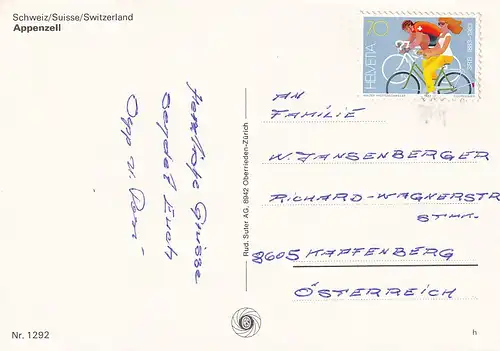 Schweiz/Suisse/Switzerland
Appenzell
70
HELVETIA
SRB 1883-1983
Herzliche Grüsse
sendet Euch
Sepp u.
Rud. Suter AG, 8942 Oberrieden-Zürich
AN
FAMILIE
W. JANSENBERGER
RICHARD-WAGNERSTR
8605 KAPFENBERG
ÖSTERREICH
Nr. 1292
h